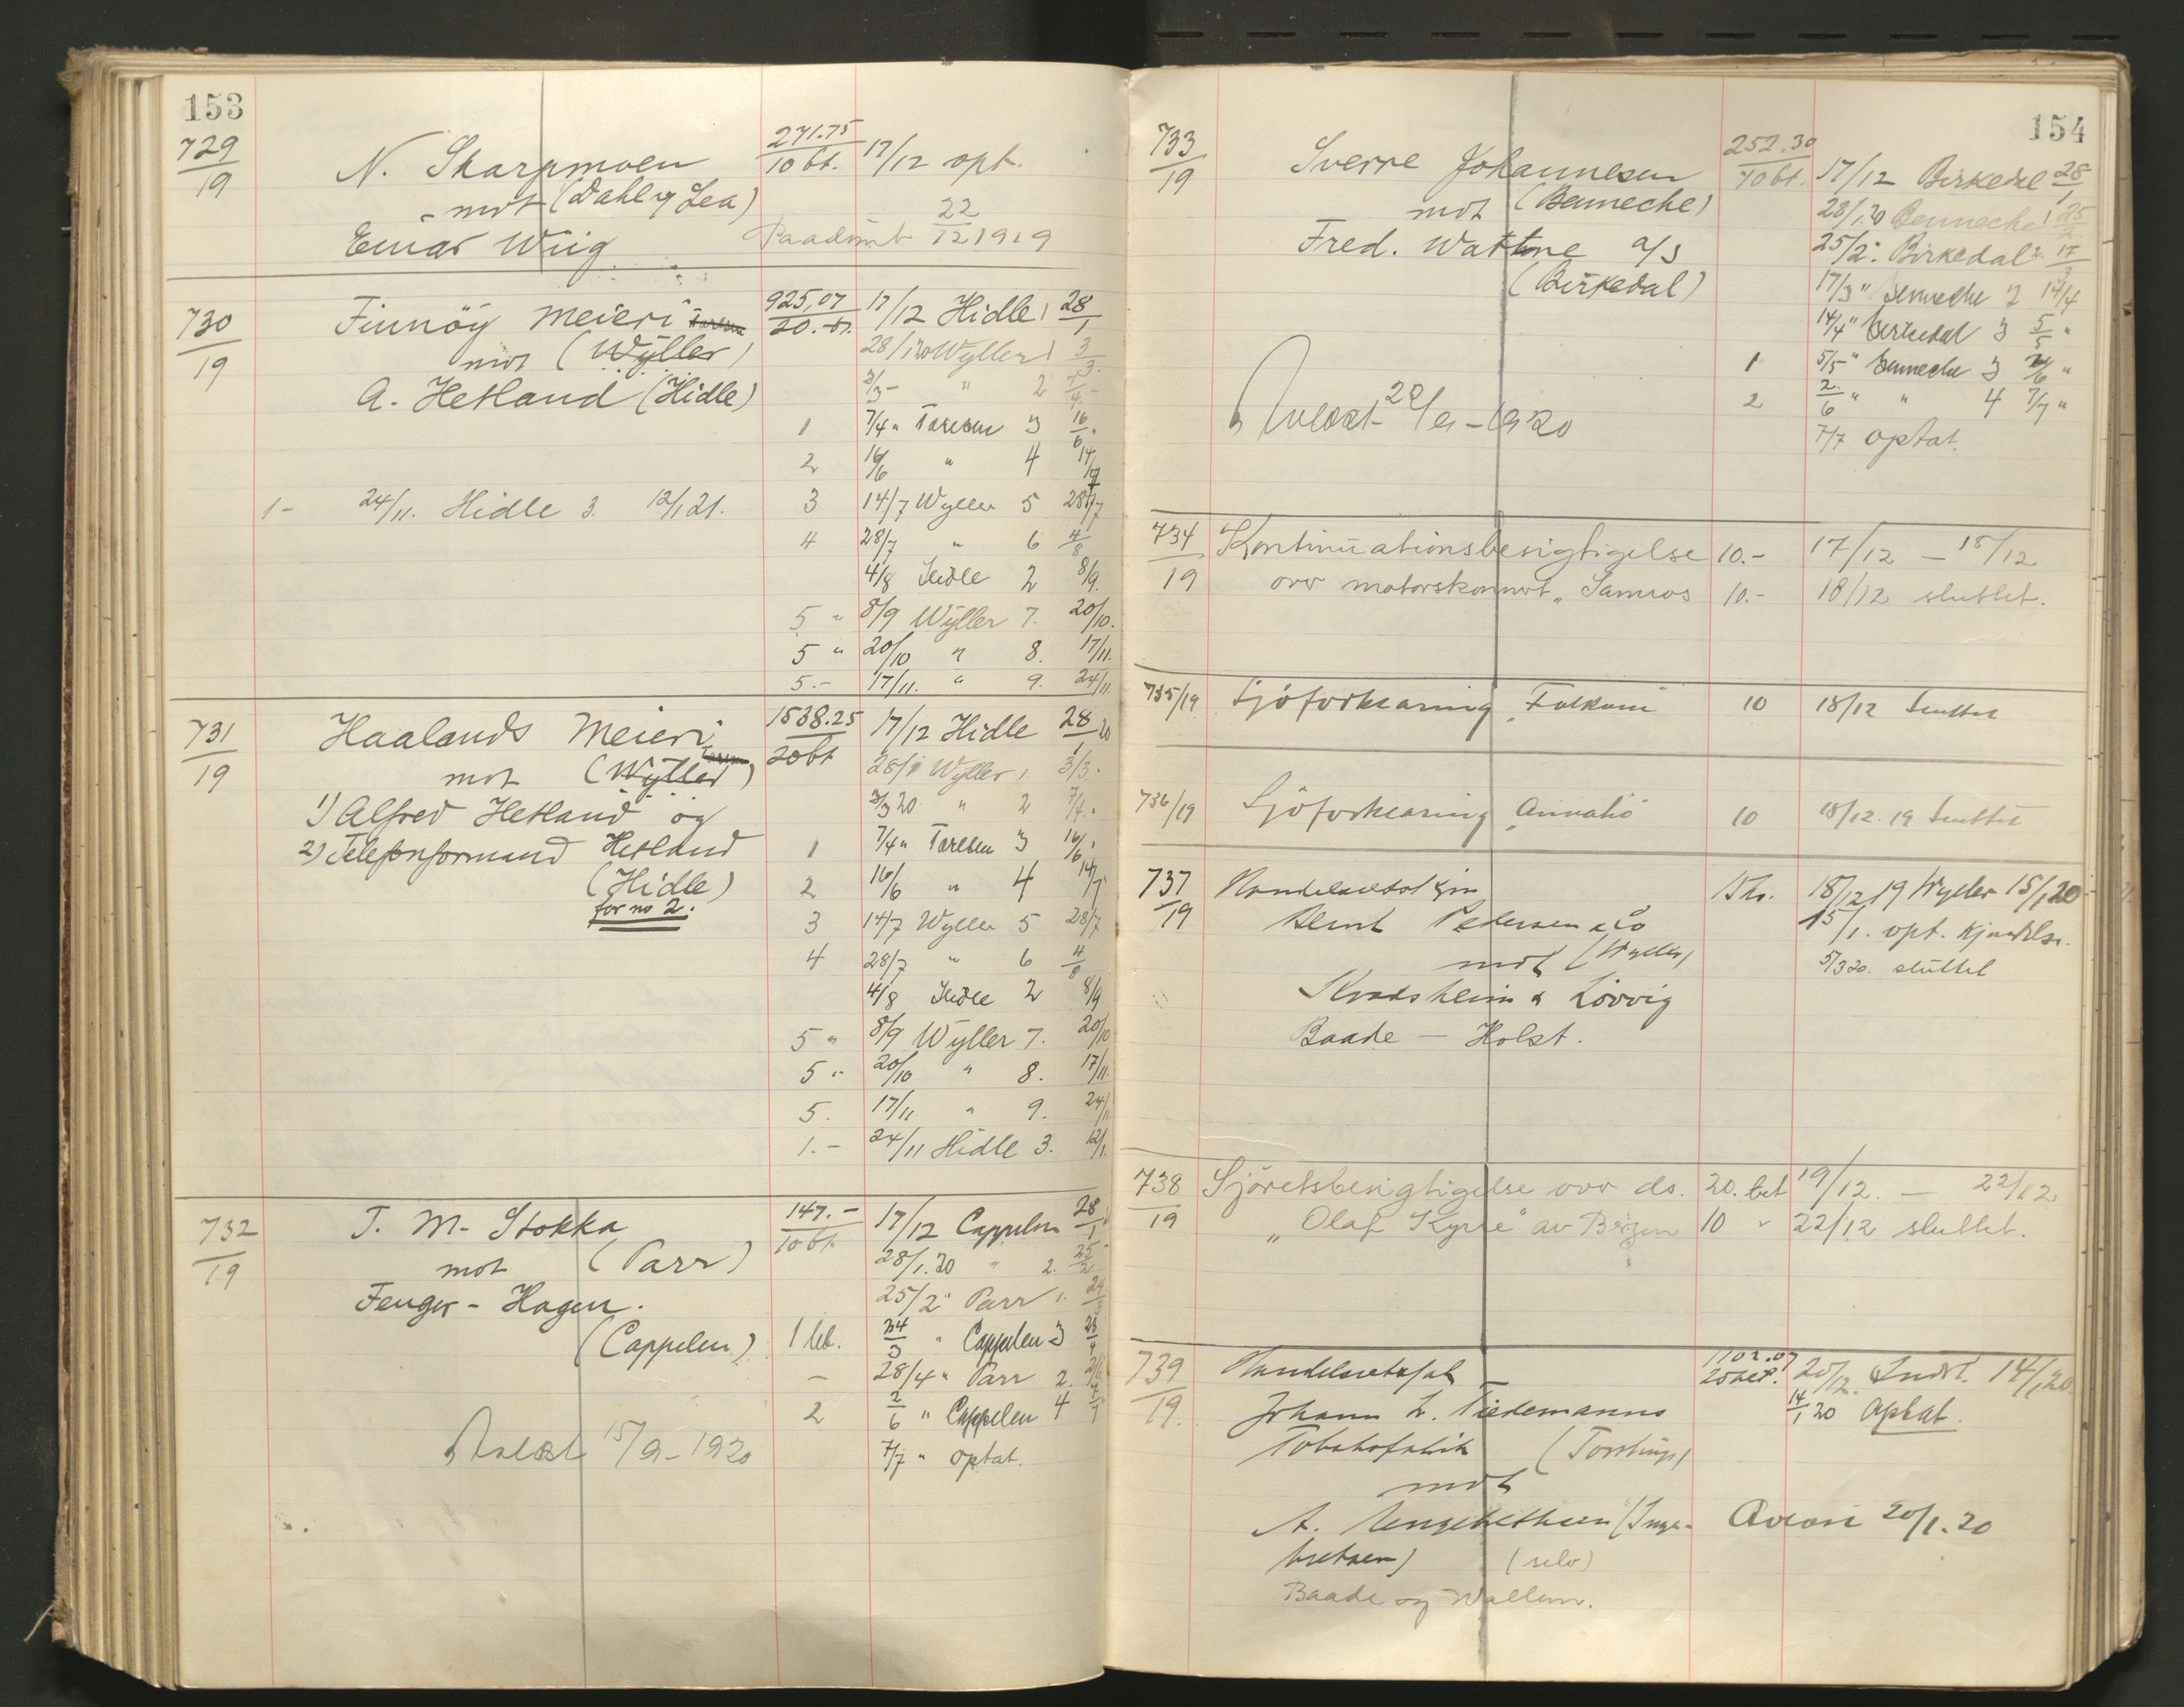 153
729/19 N. Skarpmoen 271.75/10 bt. 17/12 opt.
mot (Dahl og Lea) 22/12 1919
Einar Wiig
730/19 Finnöy Meieri 925,07/20.-bt. 17/12 Hidle 1 28/1
mot (Wyller) 28/1 20 Wyller 1 3/3.
A. Hetland (Hidle) 3/3 - " 2 7/4 -
1 7/4 " Tarlsen 3 16/6 "
2 16/6 " 4 14/7
1- 24/11. Hidle 3. 12/1 21. 3 14/7 Wyller 5 28/7
4 28/7 " 6 4/8
4/8 Hidle 2 8/9.
5 " 8/9 Wyller 7. 20/10.
5 " 20/10 " 8. 17/11.
5.- 17/11. " 9. 24/11
731/19 Haalands Meieri 1538.25/20 bt 17/12 Hidle 28/1 20
mot (Wyller) 28/1 Wyller 1 3/3.
1) Alfred Hetland og 3/3 20 " 2 7/4.
2) Telefonformand Hetland 1 7/4 " Tarlsen 3 16/6 "
(Hidle) 2 16/6 " 4 14/7
for no 2. 3 14/7 Wyller 5 28/7
4 28/7 " 6 4/8
4/8 Hidle 2 8/9
5 " 8/9 Wyller 7. 20/10
5 " 20/10 " 8. 17/11.
5. 17/11 " 9. 24/11
1.- 24/11 Hidle 3. 12/1.
732/19 T. M. Stokka 147.-/10 bt. 17/12 Cappelen 28/1
mot (Parr) 28/1.20 " 2. 25/2
Fenger-Hagen. 25/2 " Parr 1. 24/3
(Cappelen) 1 bt. 24/3 " Cappelen 3 28/4
- 28/4 " Parr 2. 2/6
2 2/6 " Cappelen 4 7/7
15/9-1920 7/7 " optat.
154
733/19 Sverre Johannesen 252.30/10 bt. 17/12 Birkedal 28/1
mot (Benneche) 28/1.20 Benneche 1 25/2
Fred. Wattne a/s 25/2 " Birkedal 2. 17/3
(Birkedal) 17/3 " Benneche 2 14/4
14/4 " Birkedal 3 5/5 "
1 5/5 " Benneche 3 2/6 "
2 2/6 " " 4 7/7 "
7/7 optat.
-1920
734/19 Kontinuationsbesigtigelse 10.- 17/12 - 18/12
over motorskonnert "Samsos 10.- 18/12 sluttet.
735/19 Sjöforklaring 10 18/12 sluttet
736/19 Sjöforklaring 10 18/12.19 sluttet
737/19 18/12 19 Wyller 15/1 20
Bernt Pedersen & Co 15/1. opt. kjendelse.
mot (Wyller) 5/3 20. sluttet
Kvadsheim & Lövvig
Baade - Holst.
738/19 Sjöretsbesigtigelse over ds. 20. bet 19/12. - 22/12
"Olaf Kyrre" av Bergen 10 " 22/12 sluttet.
739/19 Handelsretssak 1102.07/20 bet. 20/12. 14/1 20.
Johann L. Tiedemanns 14/1 20 optat.
Tobaksfabrik
mot
A. Engebrethsen (Inge-
bretsen) (selv)
Baade og Wallem.
20/1.20